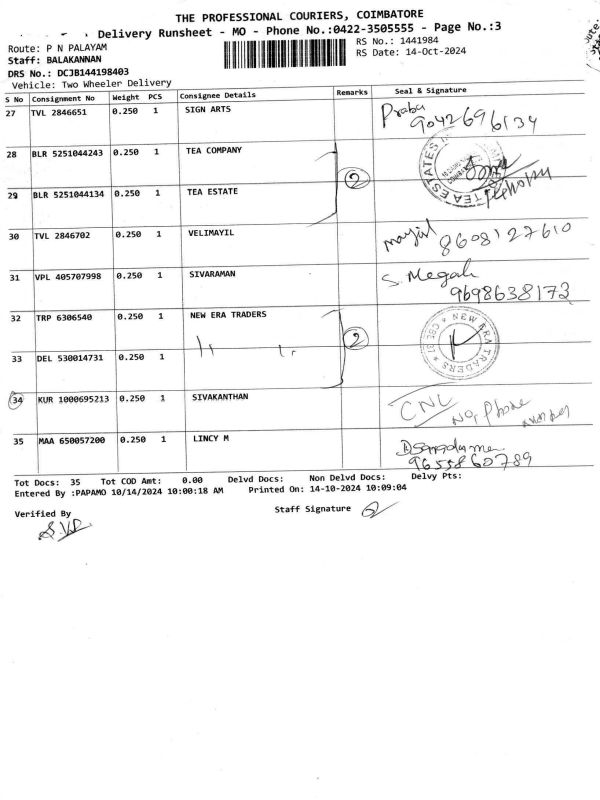 THE PROFESSIONAL COURIERS, COIMBATORE
Delivery Runsheet - MO - Phone No.:0422-3505555 - Page No.:3
Route: P N PALAYAM
RS No.: 1441984
Staff: BALAKANNAN
RS Date: 14-Oct-2024
DRS No.: DCJB144198403
Vehicle: Two Wheeler Delivery
S No Consignment No Weight PCS Consignee Details Remarks Seal & Signature
27 TVL 2846651 0.250 1 SIGN ARTS Praba
9042696134
28 BLR 5251044243 0.250 1 TEA COMPANY
2
29 BLR 5251044134 0.250 1 TEA ESTATE
TEA ESTATES
30 TVL 2846702 0.250 1 VELIMAYIL
8608127610
31 VPL 405707998 0.250 1 SIVARAMAN S. Megah
9698638173
32 TRP 6306540 0.250 1 NEW ERA TRADERS
2 NEW ERA TRADERS * CBE 37 *
33 DEL 530014731 0.250 1 " "
34 KUR 1000695213 0.250 1 SIVAKANTHAN CNL No, Phone number
35 MAA 650057200 0.250 1 LINCY M
9655860789
Tot Docs: 35 Tot COD Amt: 0.00 Delvd Docs: Non Delvd Docs: Delvy Pts:
Entered By :PAPAMO 10/14/2024 10:00:18 AM Printed On: 14-10-2024 10:09:04
Verified By
Staff Signature